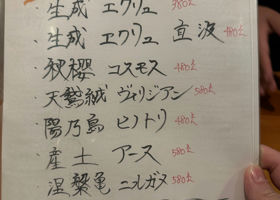 ・生成 エクリュ 380点
・生成 エクリュ 直汲 480点
・秋櫻 コスモス 480点
・天鵞絨 ヴェリジアン 580点
・陽乃鳥 ヒノトリ 480点
・産土 アース 580点
・涅槃亀 ニルガメ 580点